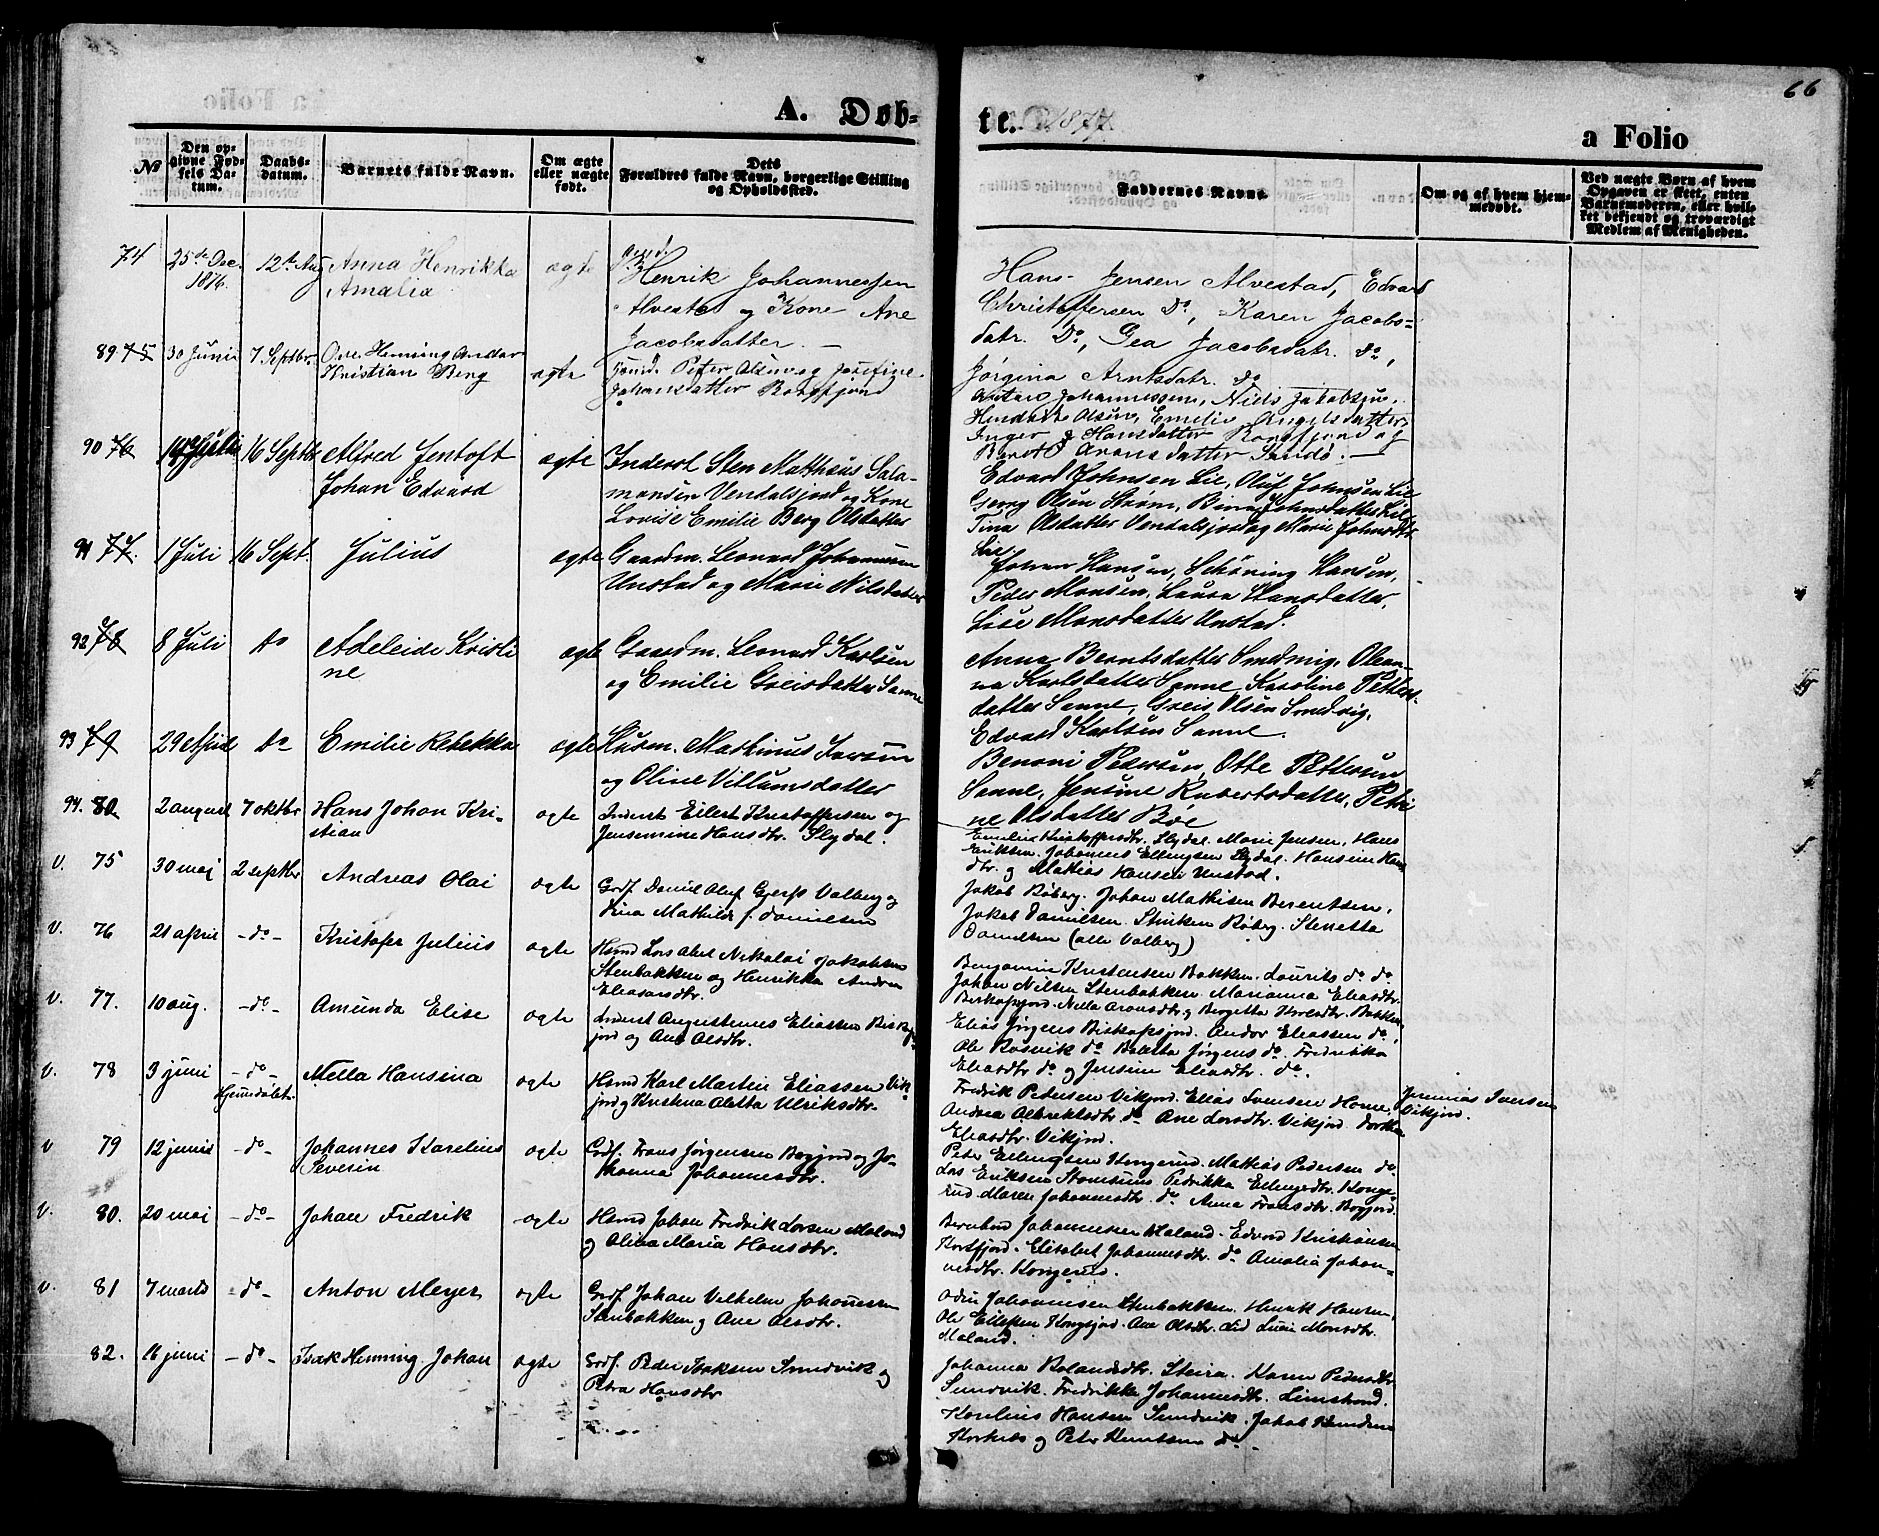 66
A. Døb-
te. 1877.
a Folio
№
Den opgivne Fødsels Datum.
Daabsdatum.
Barnets fulde Navn.
Om ægte eller uægte født.
Dets Forældres fulde Navn, borgerlige Stilling og Opholdssted.
Faddernes Navne.
Om og af hvem hjemmedøbt.
Ved uægte Børn af hvem Opgaven er skeet, enten Barnemoderen, eller hvilket bekjendt og troværdigt Medlem af Menigheden.
74 25de Dec. 1876. 12te Aug Anna Henrikka Amalia ægte
Henrik Johannessen
Alvestad og Kone Ane
Jacobsdatter. —
Hans Jensen Alvestad, Edvard
Christoffersen Do, Karen Jacobs-
datr. Do, Gea Jacobsdatr. do,
Jørgina Arntsdatr. do
89 75 30 Junii 7 Septbr. Hening Andor
Kristian Berg ægte
Peter Olsen og Josefine
Johansdatter Borgfjord
Johannessen, Niels Jakobsen,
Hendrik Olsen, Emelie Angelsdatter,
Inger Hansdatter Borgfjord og
Aronsdatter Sandø.
90 76 14 Juli 16 Septbr Alfred Jentoft
Johan Edvard ægte
Inderst Sten Matthæus Sala-
monsen Vendalsjord og Kone
Lovise Emilie Berg Olsdatter
Edvard Johnsen Lie, Oluf Johnsen Lie
Georg Olsen Strøm, Bina Johnsdatter Lie
Tina Olsdatter Vendalsjord og Marie Johnsdtr
Lie.
91 77. 1 Juli 16 Sept. Julius ægte
Gaardm. Leonard Johannesen
Unstad og Marie Nilsdatter
Johan Hansen, Schøning Hansen,
Peder Monsen, Laura Hansdatter,
Lise Monsdatter Unstad.
92 78 8 Juli do Adeleide Kristi
ne ægte
Gaardm. Leonard Karlsen
og Emilie Greisdatter Sanne
Anna Berntsdatter Smedvig, Olean-
na Karlsdatter Sanne, Karoline Petters-
datter Sanne, Greis Olsen Smedvig,
Edvard Karlsen Sanne.
93 79 29 April do Emilie Rebekka ægte
Husm. Martinus Iversen
og Oline Villumsdatter
Benoni Pedersen, Otte Pettersen
Sanne, Jensine Rubertsdatter, Petri
ne Olsdatter Bøe
94. 80. 2 august 7 oktbr Hans Johan Kri-
stian ægte
Inderst Eilert Kristoffersen og
Jensemine Hansdtr. Slydal.
Emilie Kristoffersdtr. Slydal. Marie Jensen, Hans
Eriksen. Johannes Ellingsen Slydal. Hansine Han-
dtr. og Mathias Hansen Unstad.
v. 75 30 mai 2 septbr Andreas Olai ægte
Grdf. Daniel Oluf Gjerts Valberg og
Lina Mathilde f. Danielsen
Jakob Røberg. Johan Mathisen Berentsen,
Jakob Danielsen. Røberg. Stenetta
Danielsen (alle Valberg)
v. 76 21 april -do- Kristofer Julius ægte
Hsmd Lars Abel Nikolai Jakobsen
Stenbakken og Henrikka Andrea
Eliasardtr.
Benjamin Kristensen Bakken. Laurits do do
Johan Nilsen Stenbakken. Marianna Eliasdtr.
Biskopfjord. Nella Aronsdtr og Bergetta Bakken
v. 77. 10 aug. -do- Amunda Elise ægte
Inderst Augustinus Eliassen Biskop-
fjord og Ane Olsdtr.
Elias Jørgens Biskopsfjord. Andor Eliassen do.
Ole Rosvik do Jørgens do. Fredrikka
Eliasdtr do og Jensine Eliasdtr. do.
v. 78 3 juni -do- Hjemdøbt. Nella Hansina ægte
Hsmd Karl Martin Eliassen Vik-
jord og Kristina Aletta Ulriksdtr.
Fredrik Pedersen Vikjord. Elias Svensen Horne,
Andrea Albrektsdtr do Ane Larsdtr. Vikjord.
Eliasdtr. Vikjord.
Jeremias Ivensen
Vikjord.
v 79 12 junii -do- Johannes Karelius
Severin ægte
Grdf. Frans Jørgensen Bøgjord og Jo-
hanna Johannesdtr.
Peter Ellingsen Kongerud. Mathias Pedersen do
Lars Eriksen Stomsund Pedrikka Ellingsdtr. Konge-
rud Maren Johannesdtr. do Anna Fransdtr. Bøgjord.
v. 80. 20 mai -do- Johan Fredrik ægte
Hsmd Johan Fredrik Larsen Maland
og Olina Maria Hansdtr.
Johannesen Maland. Edvard Kristiansen
Kortfjord. Elisabet Johannesdtr. do Amalia Johan-
nesdtr. Kongerud.
v. 81 7 marts -do- Anton Meyer ægte
Grdf. Johan Vilhelm Johannesen
Stenbakken og Ane Olsdtr.
Odin Johannesen Stenbakken. Henrik Hansen,
Ole Ellefsen Kongsjord. Ane Olsdtr. Lid Monsdtr.
Maland.
82. 16 juni -do- Isak Henning Johan ægte
Grdf. Peder Isaksen Sundvik og
Petra Hansdtr
Johanna Rolandsdtr. Steira. Karen Pedersdtr
Sundvik. Fredrikke Johannesdtr. Limstrand.
Karelius Hansen Sundvik. Jakob Knudsen
og Peter Knutsen do.